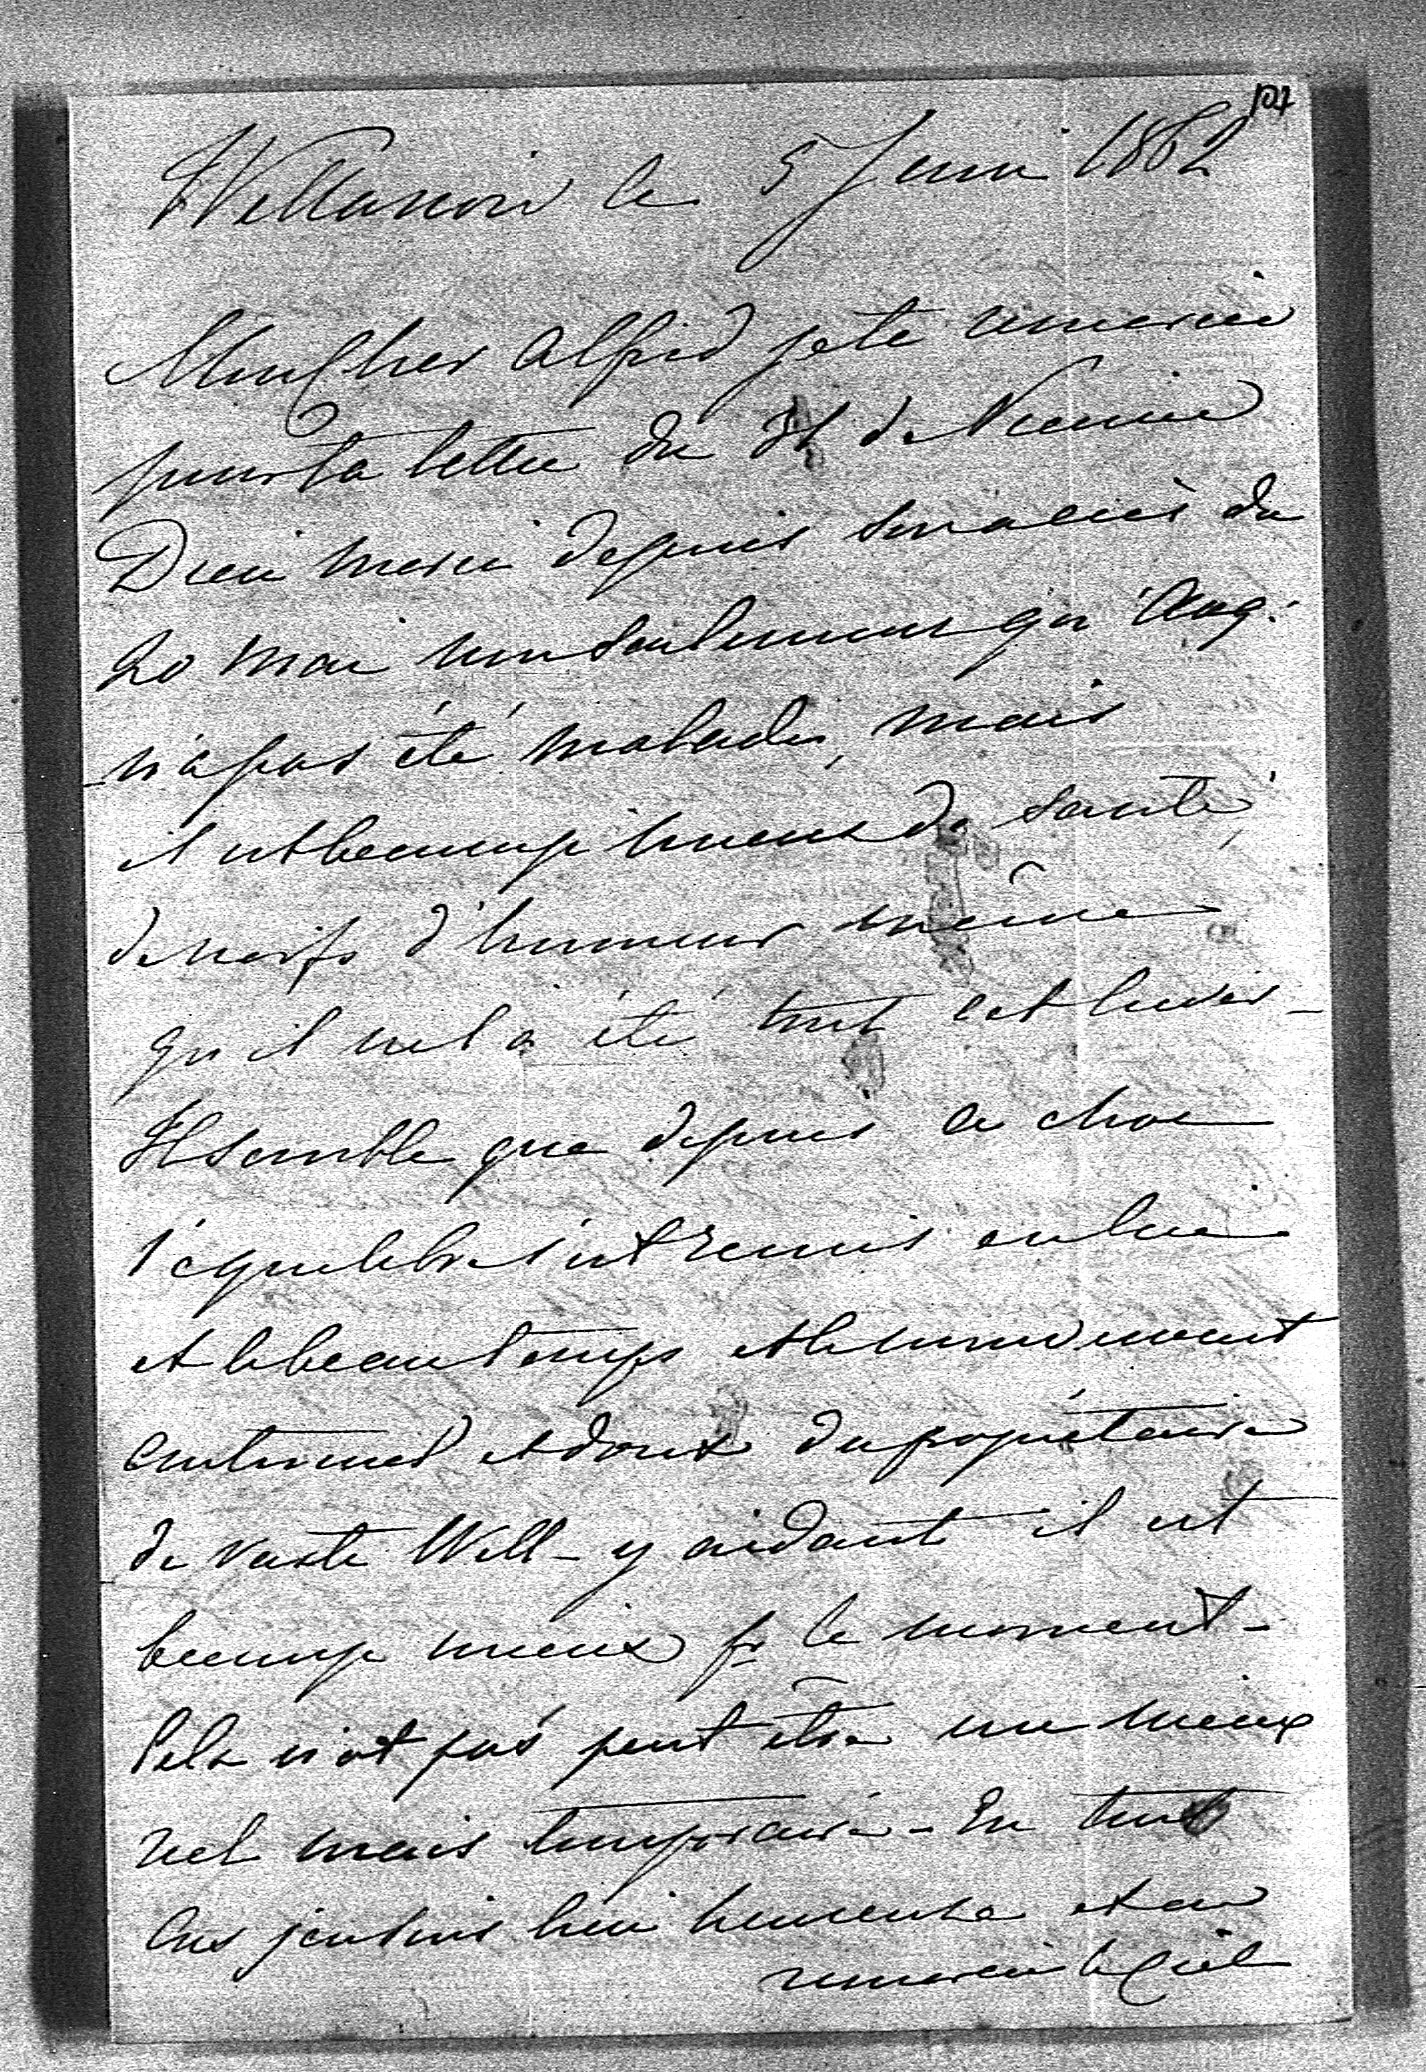 101
Willanow le 5 Juin 1862
Mon Cher Alfred je te remercie
pour ta lettre du 31 de Vienne
Dieu merci depuis son accès du
20 Mai non seulement qu'Aug.
n'a pas été malade, mais
il est beaucoup mieux de santé,
de nerfs d'humeur même
qu'il ne l'a été tout cet hiver –
Il semble que depuis ce choc
l'équilibre s'est remis en lui
et le beau temps et le mouvement
continuel et doux du propriétaire
de vaste Will – y aidant il est
beaucoup mieux pr le moment –
Cela n'est pas peut être un mieux
réel mais temporaire – En tout
cas j'en suis bien heureuse et en
remercie le Ciel